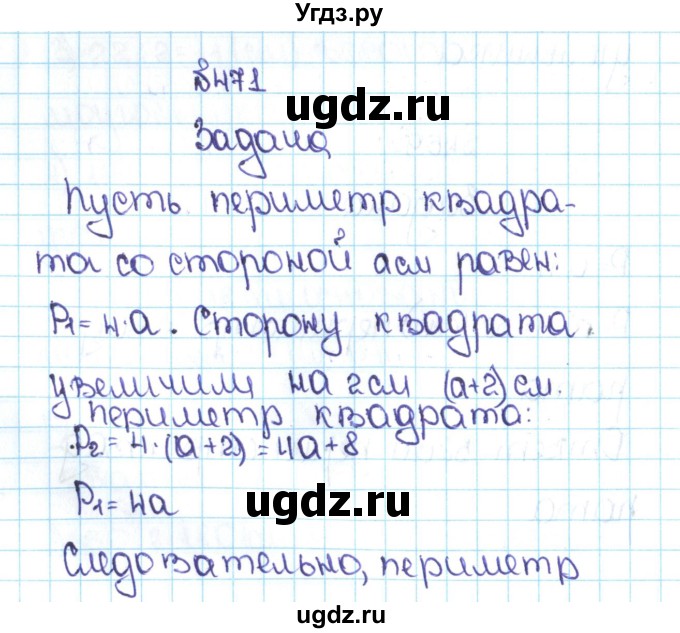 Угдз.ру
№471
ugdz.ru
Задача
Пусть периметр квадра-
та со стороной a см равен:
P1=4·a. Сторону квадрата
увеличили на 2 см (a+2) см.
периметр квадрата:
P2=4·(a+2)=4a+8
P1=4a
ugdz.ru
Следовательно, периметр
ugdz.ru